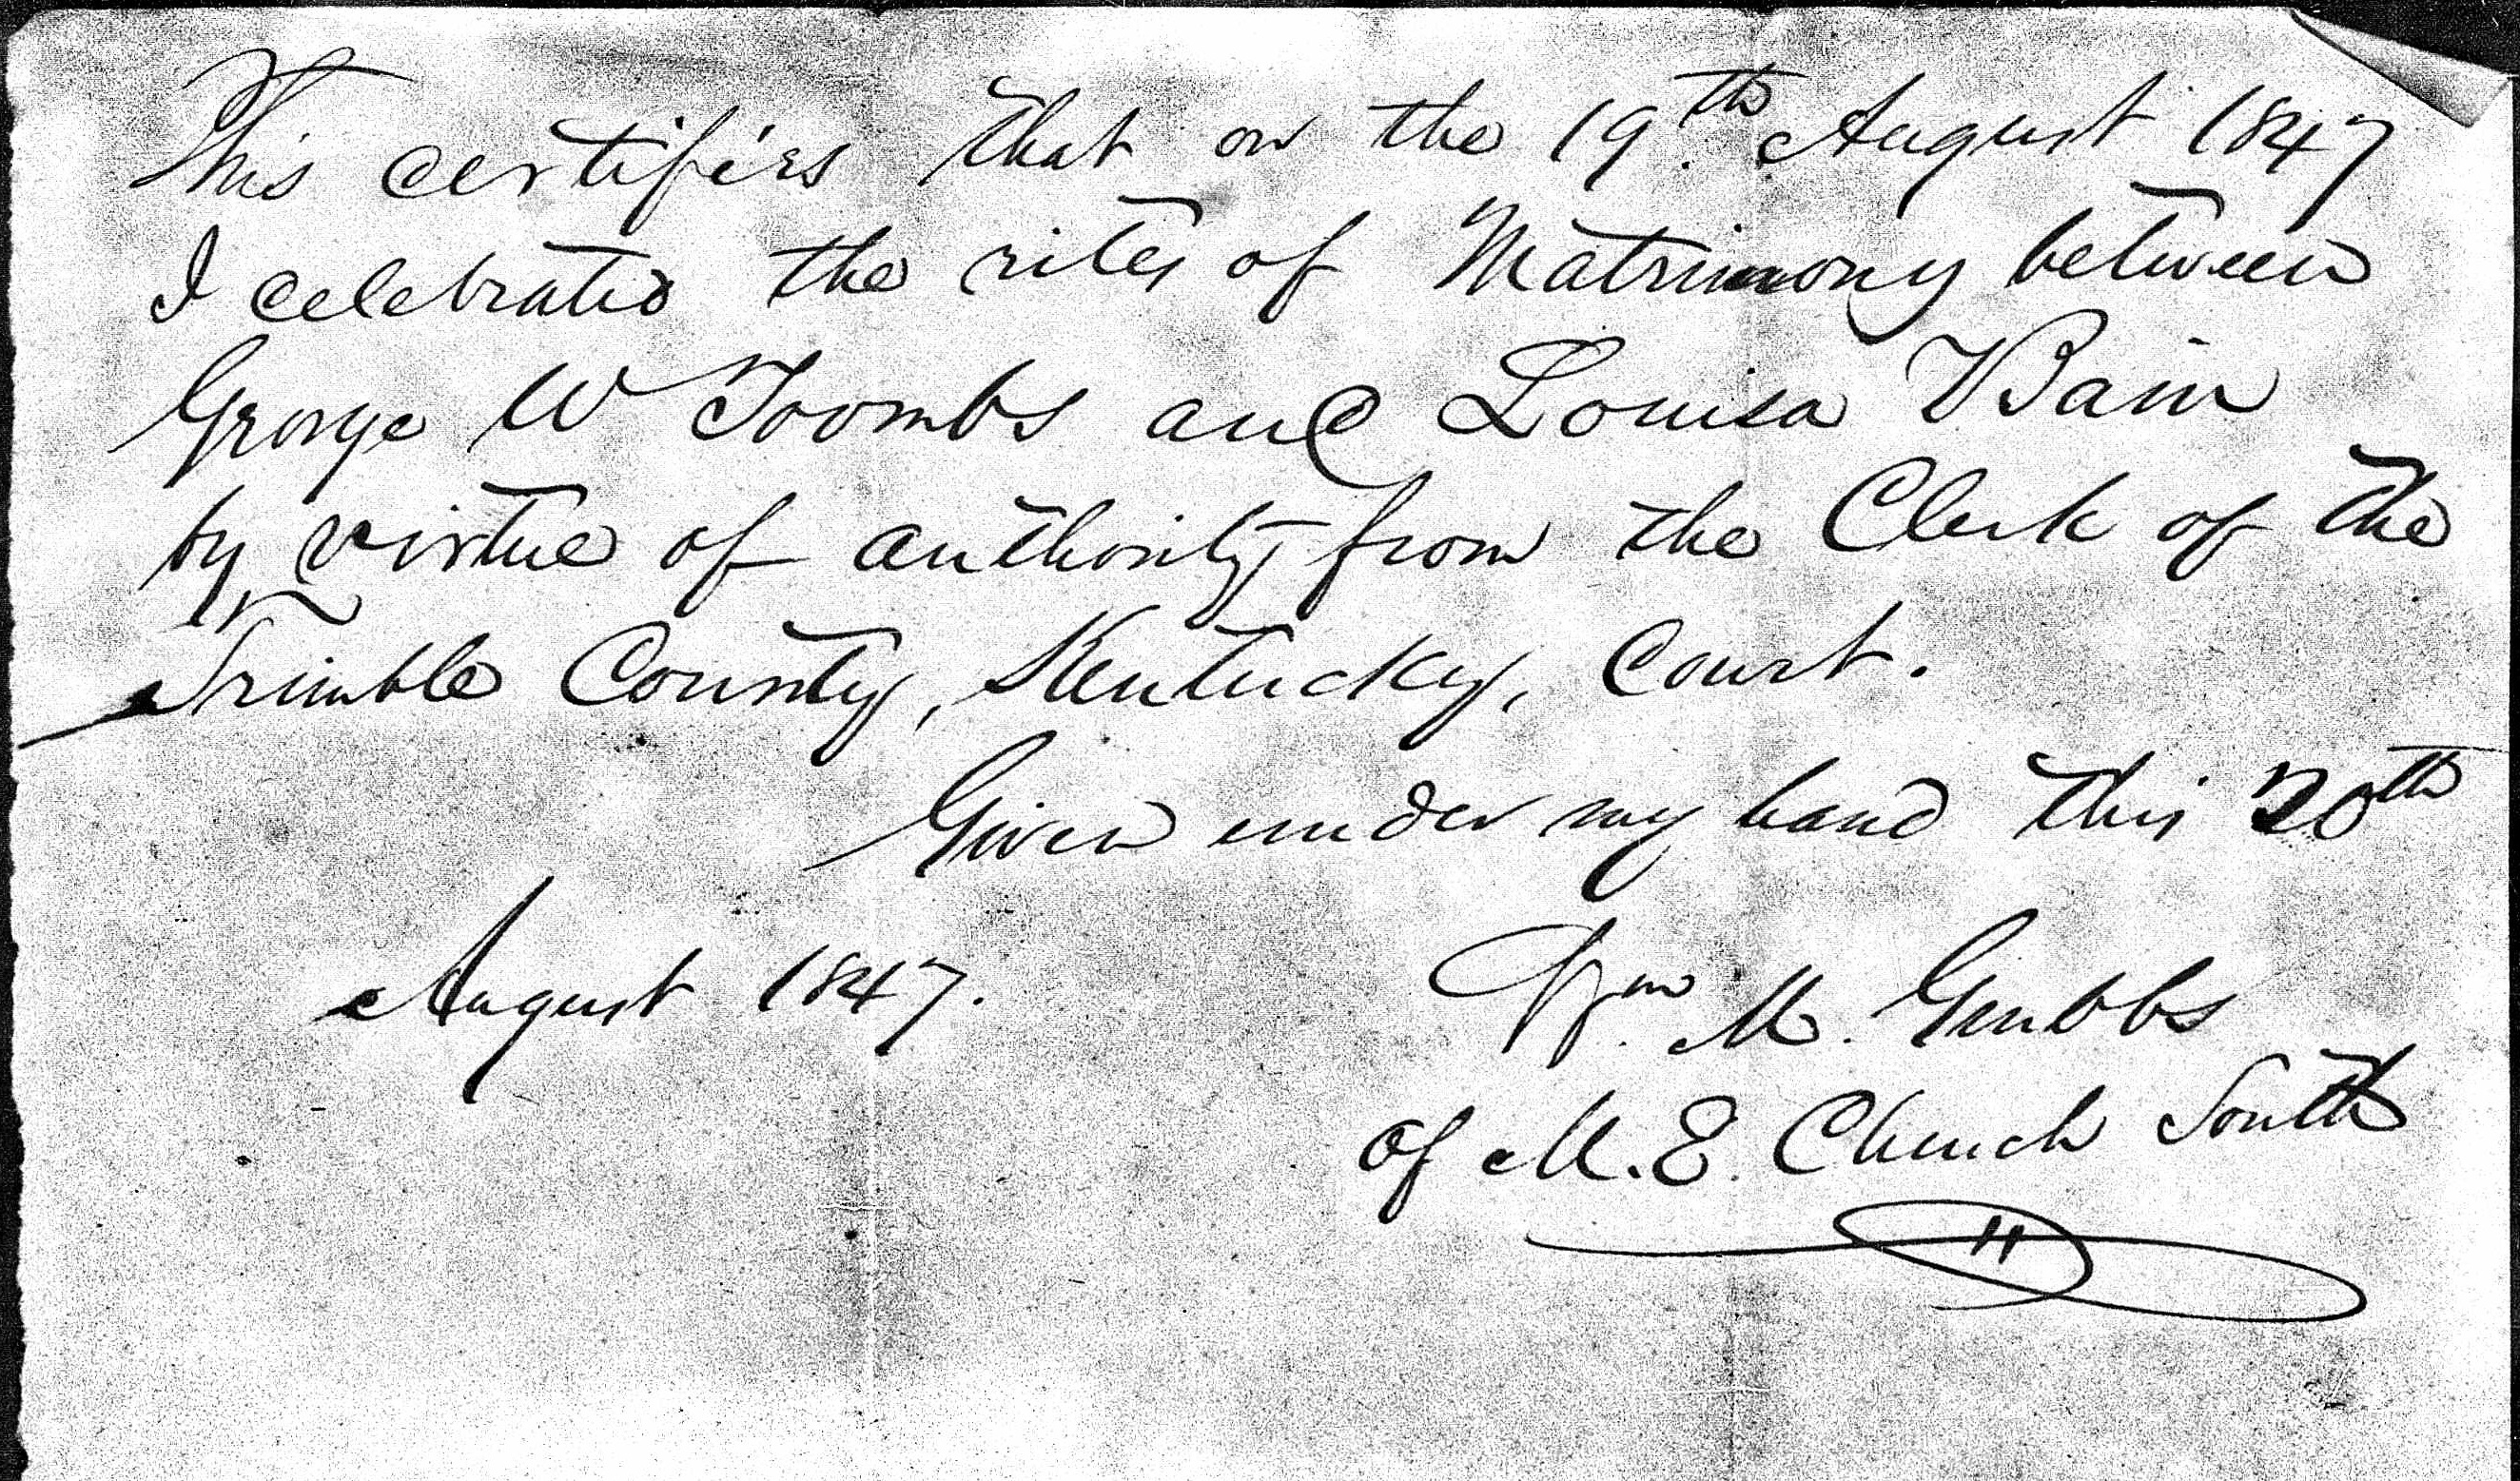 This certifies that on the 19th. August 1847
I celebrated the rites of Matrimony between
George W Toombs and Louisa Bain
by virtue of authority from the Clerk of the
Trimble County, Kentucky, Court.
Given under my hand this 20th
August 1847.
Wm. M. Grubbs
of M. E. Church South